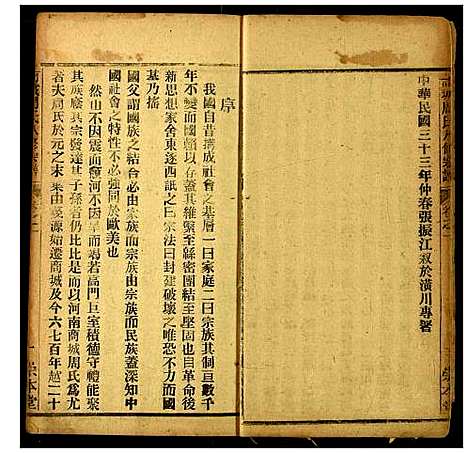 商城周氏八修宗譜 卷之一
中華民國三十三年仲春張振江敘於潢川專署
榮本堂
序
我國自昔構成社會之基層一曰家庭二曰宗族其制亘數千
年不變而國族之得以維繫至今
新思想家舍東逐西詆之曰宗法曰封建破壞之惟恐不力而國
基乃搖
國父謂國族之結合必由家族而宗族由宗族而民族蓋深知中
國社會之特性不必強同於歐美也
然山不因震而河不因旱而竭若高門巨室積德守禮能聚
其族而發達其子孫者仍比比是而以河南商城周氏為尤
著夫周氏於元之末葉由婺源始遷商城及今六七百年越二十
一 榮本堂